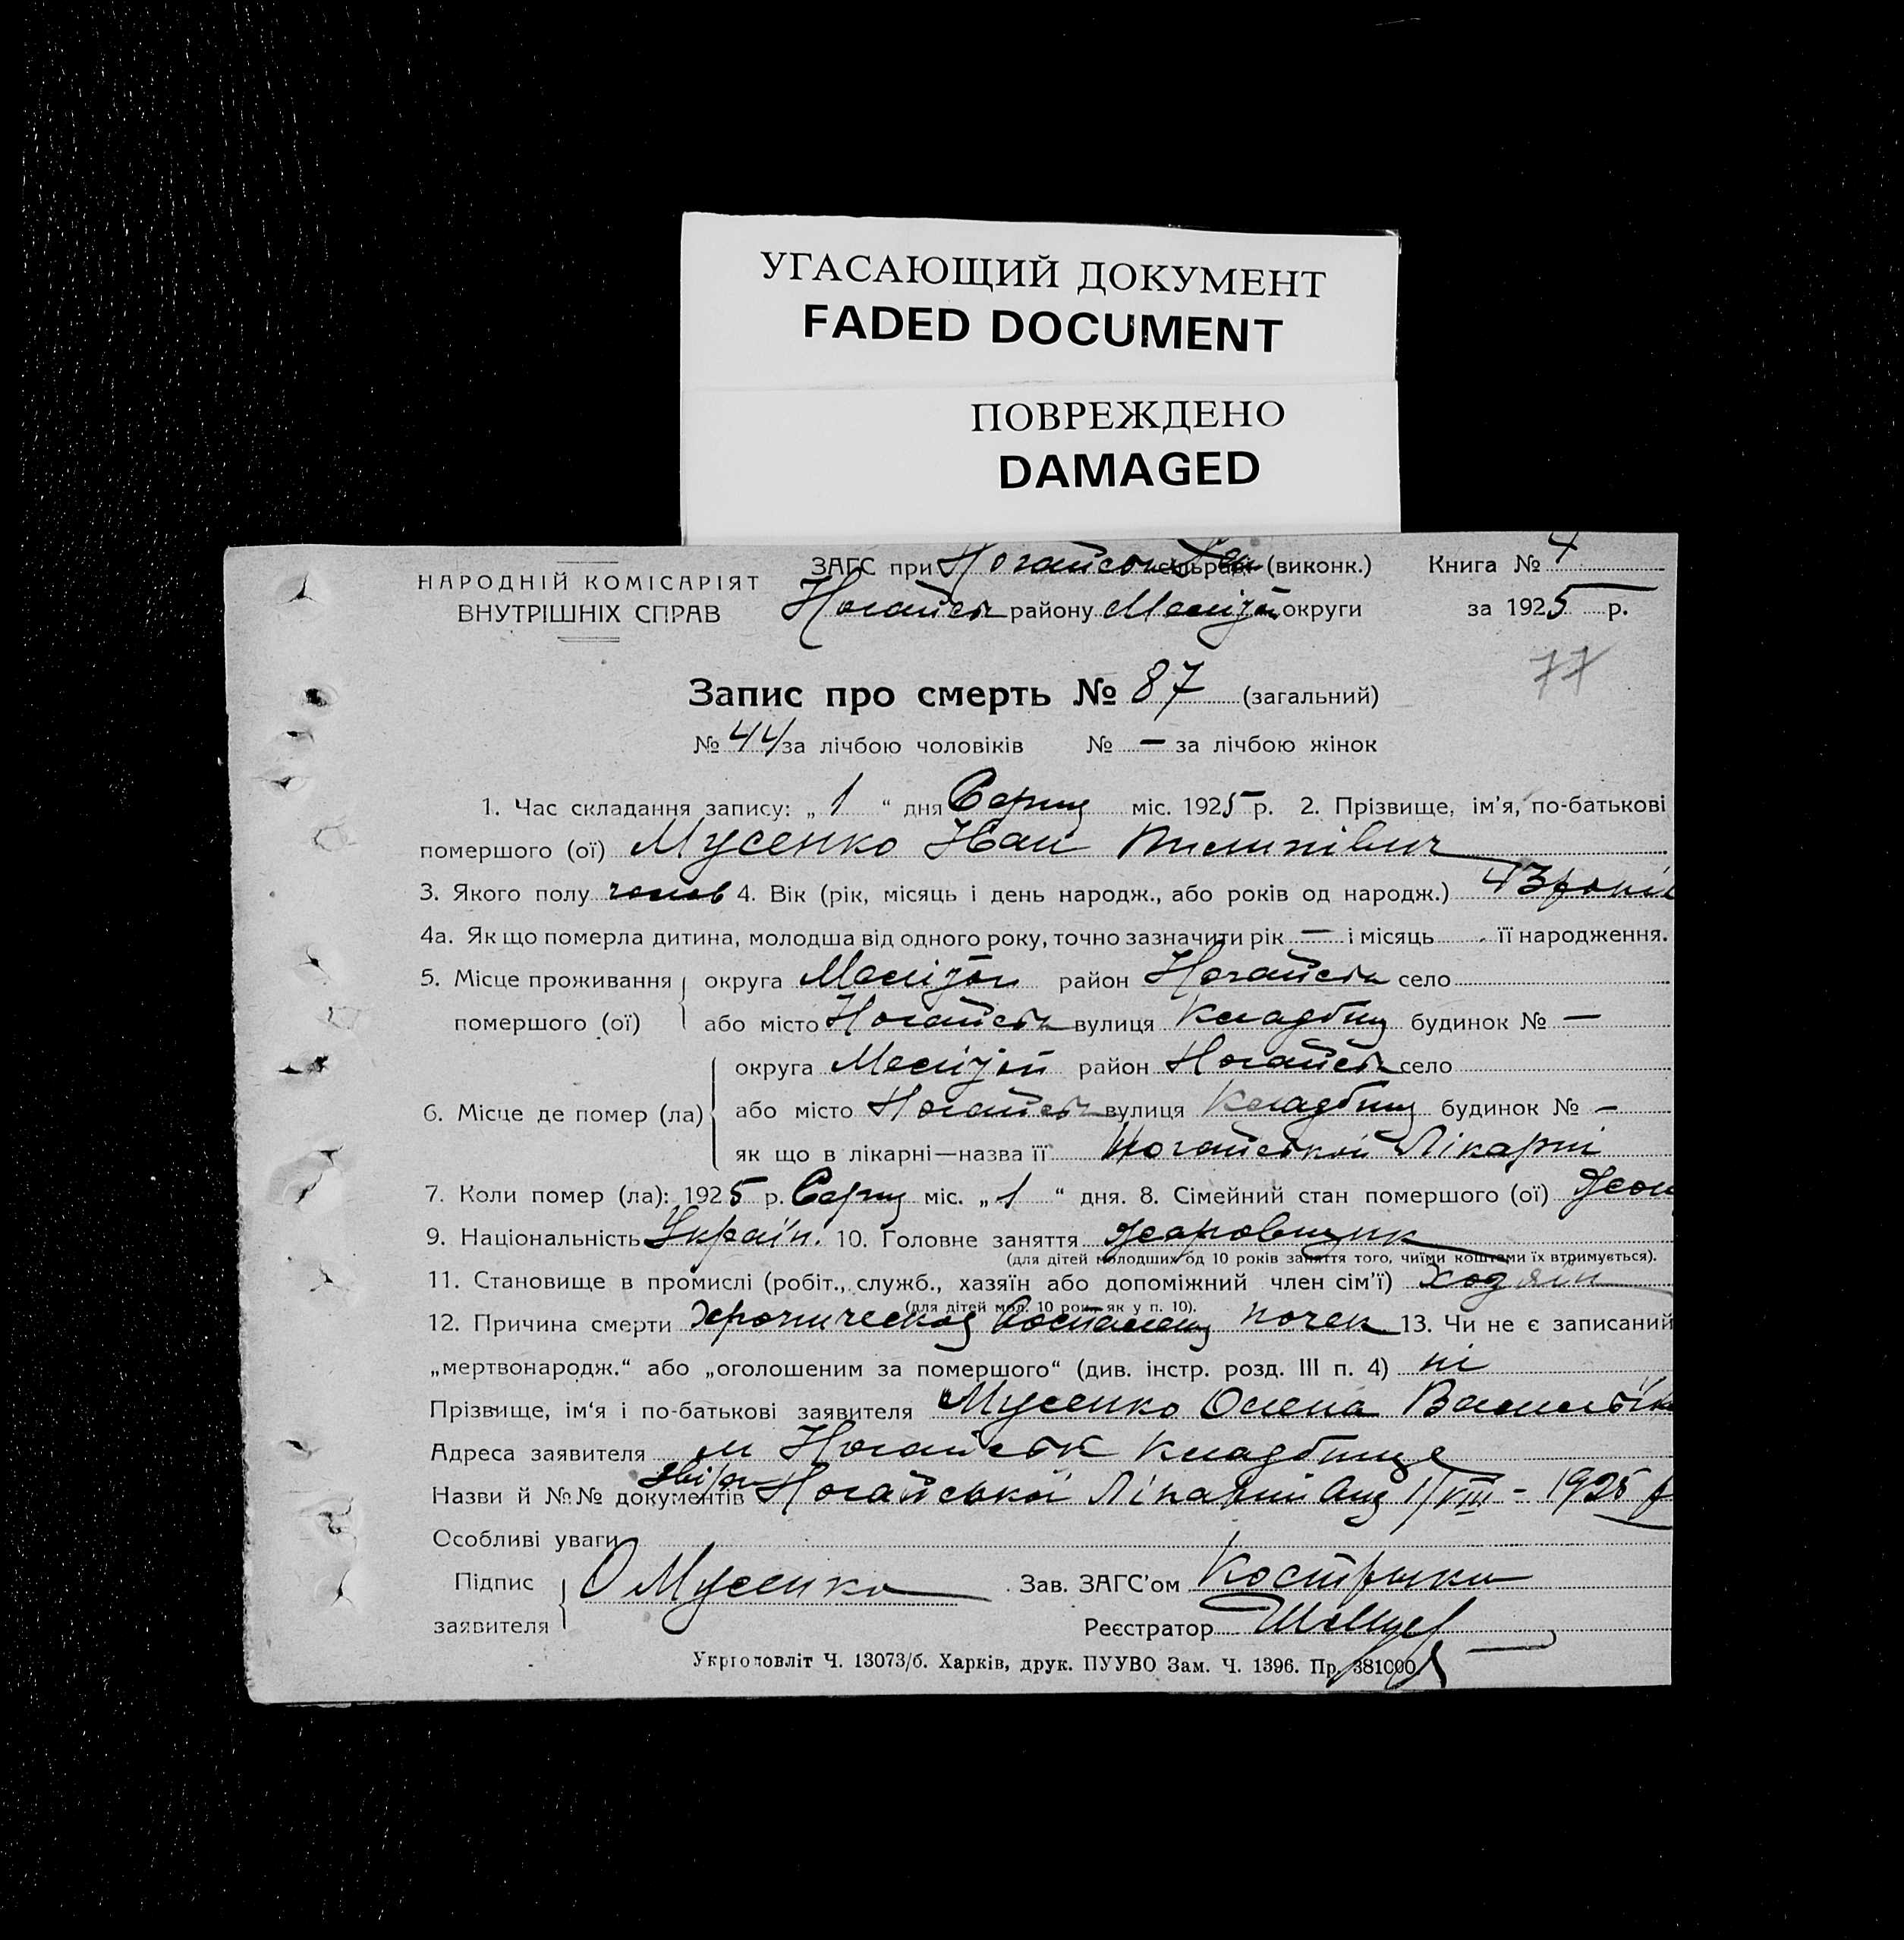 УГАСАЮЩИЙ ДОКУМЕНТ
FADED DOCUMENT
ПОВРЕЖДЕНО
DAMAGED
НАРОДНІЙ КОМІСАРІЯТ
ВНУТРІШНІХ СПРАВ
ЗАГС при Ногайськ сельраді (виконк.) Книга № 4
Ногайськ району Меліт округи за 1925 р.
77
Запис про смерть № 87 (загальний)
№ 44 за лічбою чоловіків № — за лічбою жінок
1. Час складання запису: „ 1 “ дня Серпн міс. 1925 р. 2. Прізвище, ім'я, по-батькові
помершого (ої) Мусенко Іван Пилипівич
3. Якого полу чолов 4. Вік (рік, місяць і день народж., або років од народж.) 43 роки
4а. Як що померла дитина, молодша від одного року, точно зазначити рік — і місяць . її народження.
5. Місце проживання округа Меліт район Ногайськ село
помершого (ої) або місто Ногайськ вулиця Кладбищ будинок № —
округа Меліт район Ногайськ село
6. Місце де помер (ла) або місто Ногайськ вулиця Кладбищ будинок № —
як що в лікарні—назва її Ногайській Лікарні
7. Коли помер (ла): 1925 р. Серпн міс. „ 1 “ дня. 8. Сімейний стан помершого (ої) Жон
9. Національність Україн. 10. Головне заняття
(для дітей молодших од 10 років заняття того, чиїми коштами їх втримується).
11. Становище в промислі (робіт., служб., хазяїн або допоміжний член сім'ї) ходяїн
(для дітей мол. 10 рок., як у п. 10).
12. Причина смерти Хроническое Воспален почек 13. Чи не є записаний
„мертвонародж.“ або „оголошеним за помершого“ (див. інстр. розд. III п. 4) ні
Прізвище, ім'я і по-батькові заявителя Мусенко Олена Васильівн
Адреса заявителя м Ногайськ Кладбище
Назви й №№ документів Ногайської Лікарні 1/VIII - 1925 р
Особливі уваги
Підпис заявителя О Мусенко Зав. ЗАГС'ом
Реєстратор
Укрголовліт Ч. 13073/б. Харків, друк. ПУУВО Зам. Ч. 1396. Пр. 381000.